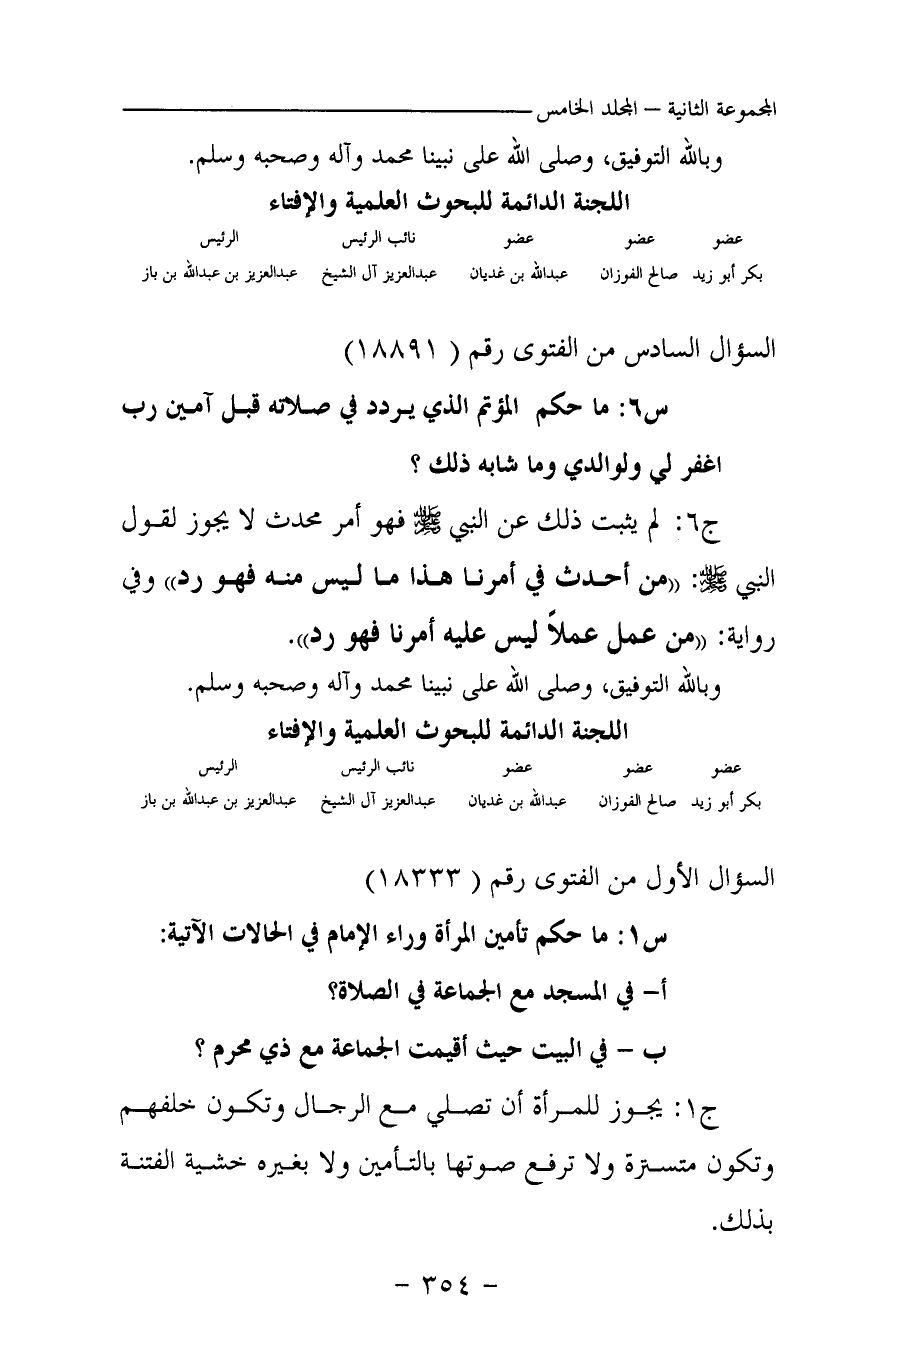 المجموعة الثانية – المجلد الخامس
وبالله التوفيق، وصلى الله على نبينا محمد وآله وصحبه وسلم.
اللجنة الدائمة للبحوث العلمية والإفتاء
عضو عضو عضو نائب الرئيس الرئيس
بكر أبو زيد صالح الفوزان عبدالله بن غديان عبدالعزيز آل الشيخ عبدالعزيز بن عبدالله بن باز
السؤال السادس من الفتوى رقم ( ١٨٨٩١)
س٦: ما حكم المؤتم الذي يردد في صلاته قبل آمين رب
اغفر لي ولوالدي وما شابه ذلك ؟
ج٦: لم يثبت ذلك عن النبي ﷺ فهو أمر محدث لا يجوز لقول
النبي ﷺ: ((من أحدث في أمرنا هذا ما ليس منه فهو رد)) وفي
رواية: ((من عمل عملاً ليس عليه أمرنا فهو رد)).
وبالله التوفيق، وصلى الله على نبينا محمد وآله وصحبه وسلم.
اللجنة الدائمة للبحوث العلمية والإفتاء
عضو عضو عضو نائب الرئيس الرئيس
بكر أبو زيد صالح الفوزان عبدالله بن غديان عبدالعزيز آل الشيخ عبدالعزيز بن عبدالله بن باز
السؤال الأول من الفتوى رقم ( ١٨٣٣٣)
س١: ما حكم تأمين المرأة وراء الإمام في الحالات الآتية:
أ– في المسجد مع الجماعة في الصلاة؟
ب – في البيت حيث أقيمت الجماعة مع ذي محرم ؟
ج١: يجوز للمرأة أن تصلي مع الرجال وتكون خلفهم
وتكون متسترة ولا ترفع صوتها بالتأمين ولا بغيره خشية الفتنة
بذلك.
– ٣٥٤ –